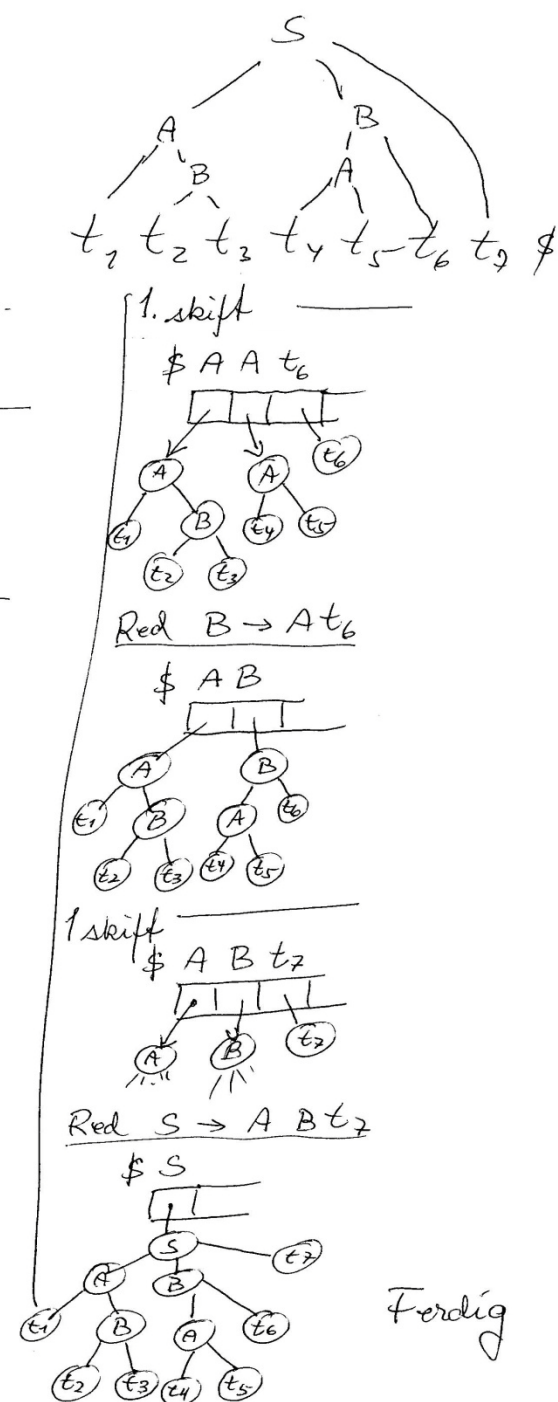 S
A B
B A
t₁ t₂ t₃ t₄ t₅ t₆ t₇ $
1. skift
$ A A t₆
A A t₆
t₁ B t₄ t₅
t₂ t₃
Red B → A t₆
$ A B
A B
t₁ B A t₆
t₂ t₃ t₄ t₅
1 skift
$ A B t₇
A B t₇
Red S → A B t₇
$ S
S
A B t₇
t₁ B A t₆
t₂ t₃ t₄ t₅
Ferdig